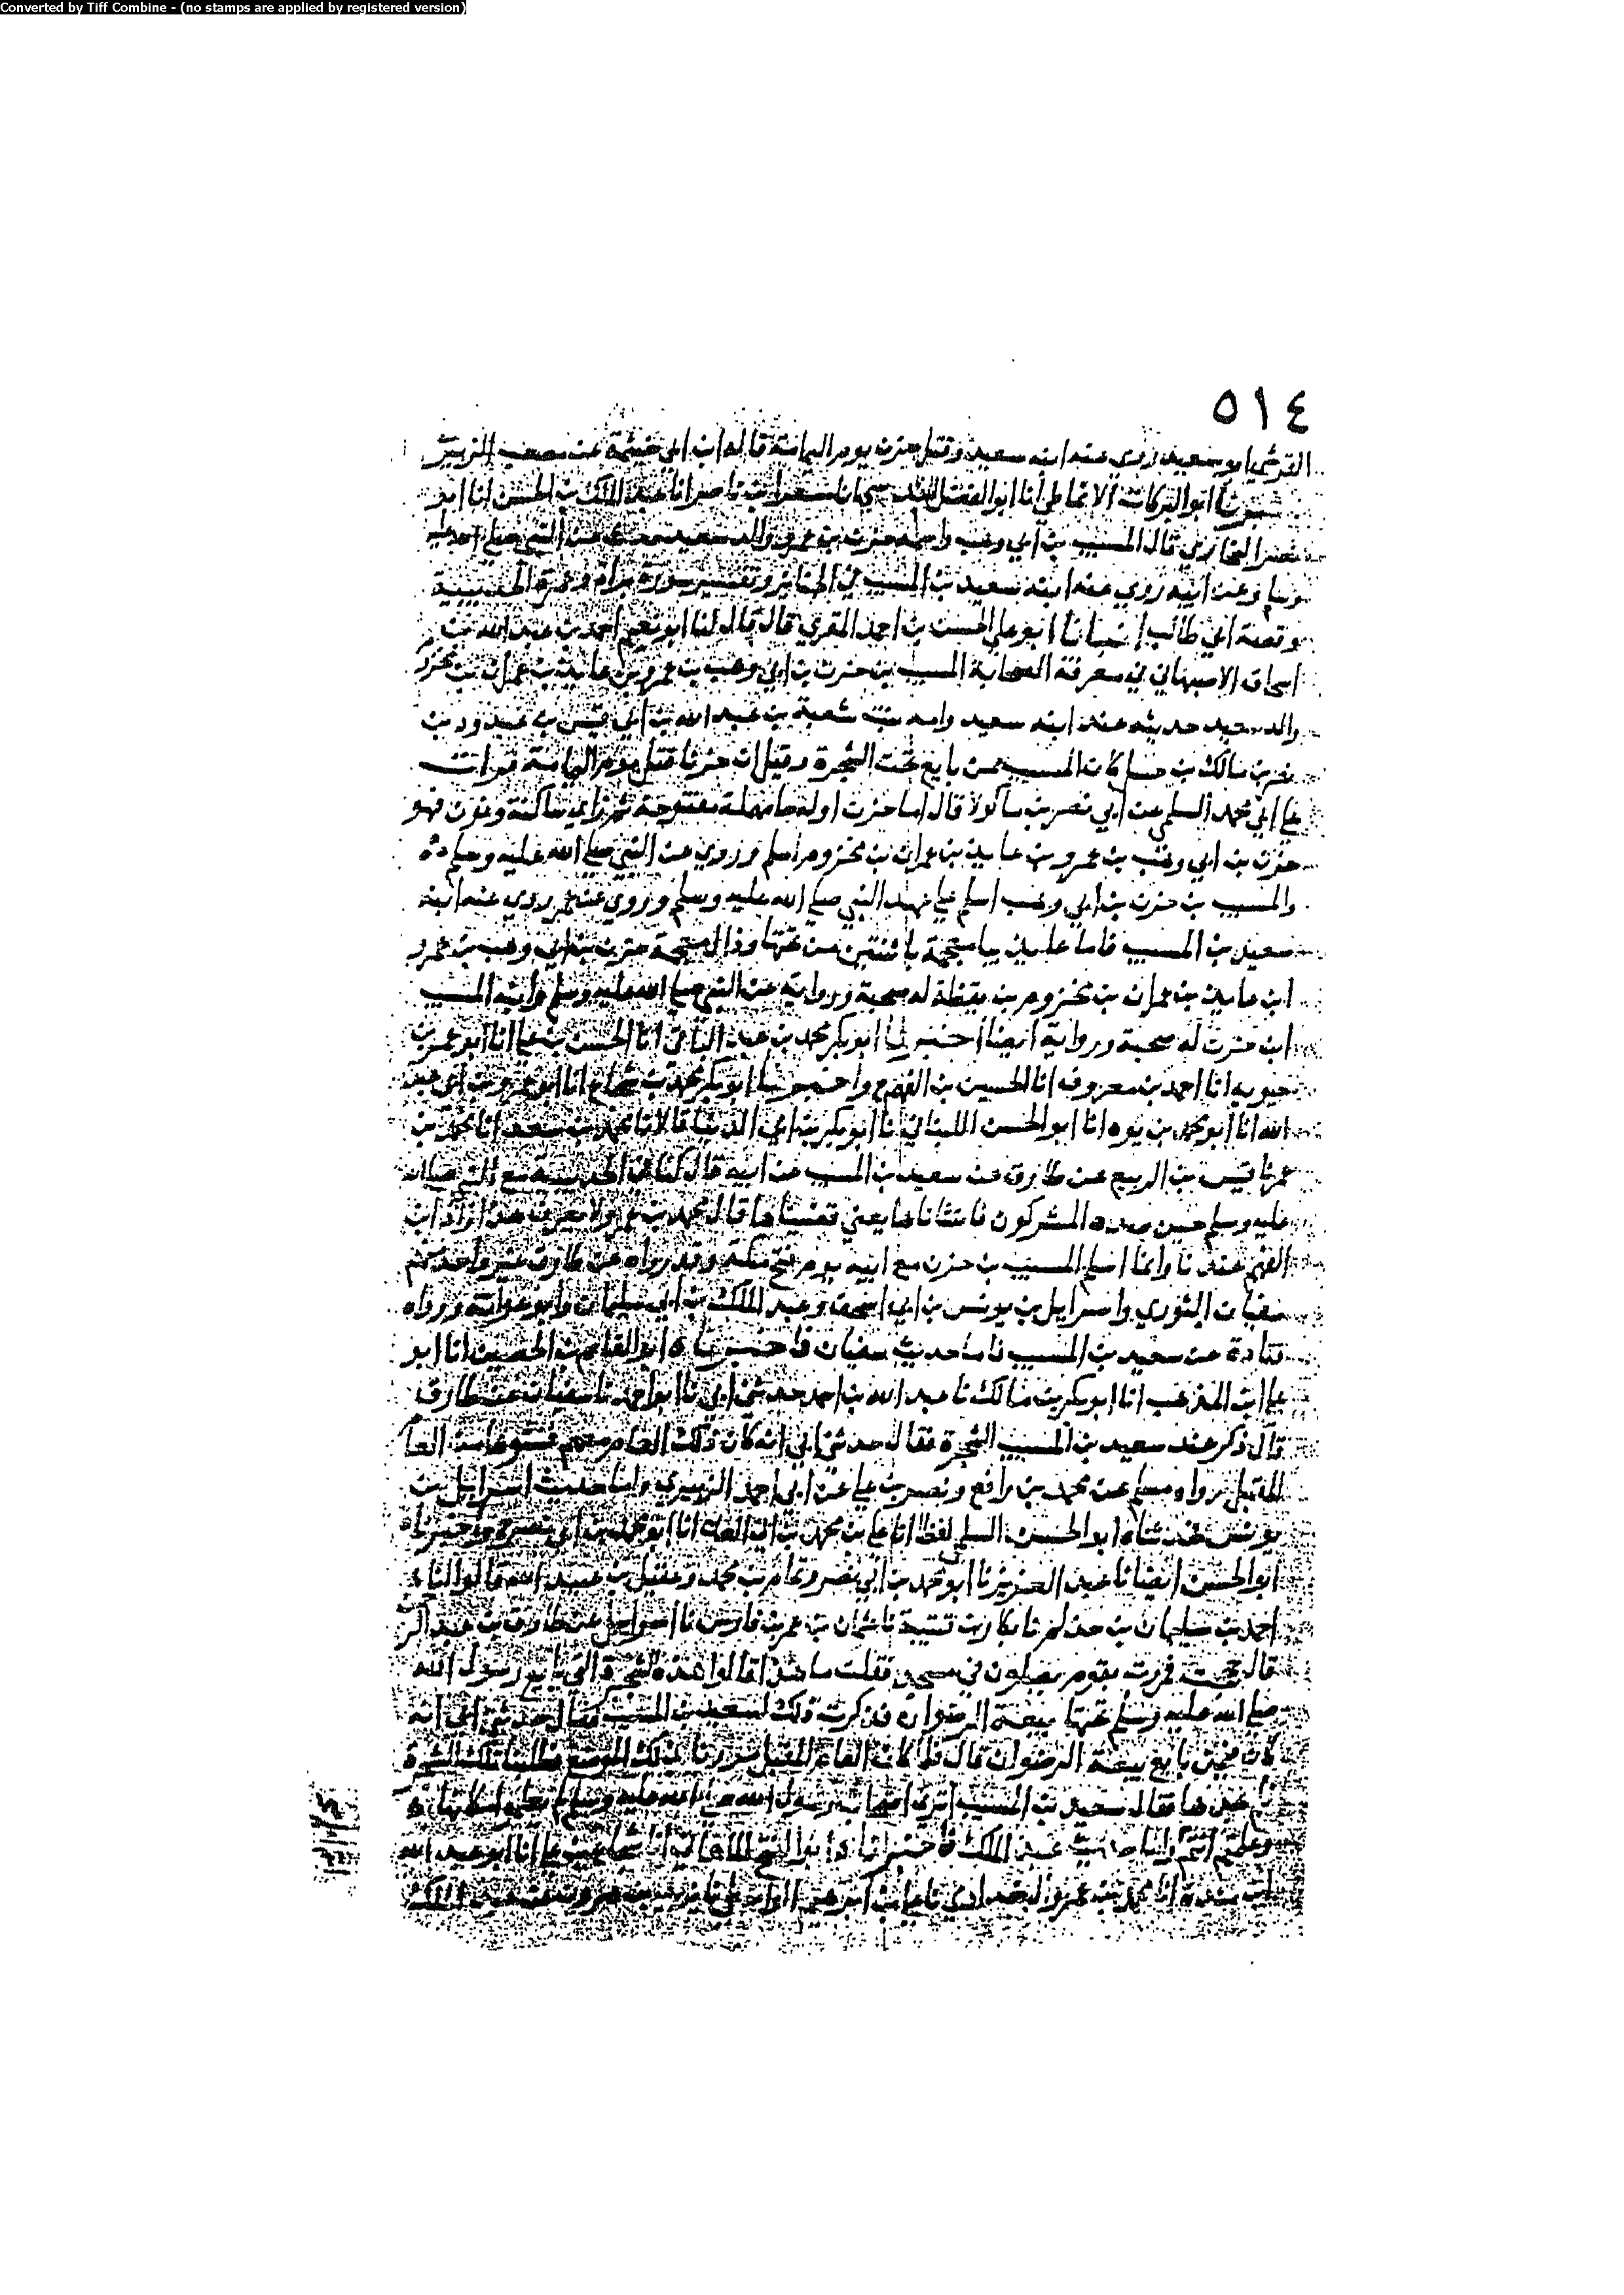 Converted by Tiff Combine - (no stamps are applied by registered version)
٥١٤
القرشي ابو سعيد روى عنه ابنه سعيد وقتل حزن يوم اليمامة قاله ابن ابي خيثمة عن مصعب الزبيري
ابو البركات الانماطي انا ابو الفضل انا مسعود بن ناصر انا عبد الملك بن الحسن انا ابو
البخاري قال المسيب بن ابي وهب واسمه حزن بن عمرو والد سعيد سمع عن النبي صلى الله عليه
وسلم وعن ابيه روى عنه ابنه سعيد بن المسيب في الجنايز وتفسير سورة براة وعمرة الحديبية
وقصة ابي طالب انبانا ابو علي الحسن بن احمد المقري قال قال لنا ابو نعيم احمد بن عبد الله بن
اسحاق الاصبهاني في معرفة الصحابة المسيب بن حزن بن ابي وهب بن عمرو بن عايذ بن عمران بن مخزوم
والد سعيد حديثه عند ابنه سعيد وامه بنت شعبة بن عبد الله بن ابي قيس بن عبد ود بن
نصر بن مالك بن حسل كان المسيب ممن بايع تحت الشجرة وقيل ان حزنا قتل يوم اليمامة قرات
على ابي محمد السلمي عن ابي نصر بن ماكولا قال اما حزن اوله حا مهملة مفتوحة ثم زاي ساكنة ونون فهو
حزن بن ابي وهب بن عمرو بن عايذ بن عمران بن مخزوم اسلم وروى عن النبي صلى الله عليه وسلم
والمسيب بن حزن بن ابي وهب اسلم على عهد النبي صلى الله عليه وسلم وروى عن عمر روى عنه ابنه
سعيد بن المسيب فاما عايذ بيا معجمة باثنتين من تحتها وذال معجمة حزن بن ابي وهب بن عمرو
ابن عايذ بن عمران بن مخزوم بن يقظة له صحبة ورواية عن النبي صلى الله عليه وسلم وابنه المسيب
ابن حزن له صحبة ورواية ايضا اخبرنا ابو بكر محمد بن عبد الباقي انا الحسن بن علي انا ابو عمر بن
حيويه انا احمد بن معروف انا الحسين بن الفهم واخبرنا ابو بكر محمد بن شجاع انا ابو عمرو بن ابي عبد
الله انا ابو محمد بن يوه انا ابو الحسن اللبناني نا ابو بكر بن ابي الدنيا قالا نا محمد بن سعد انا محمد بن
عمر نا قيس بن الربيع عن طارق عن سعيد بن المسيب عن ابيه قال كنا في الحديبية مع النبي صلى الله
عليه وسلم حين صده المشركون فانشاناها يعني قضيناها قال محمد بن عمر ولا نعرف هذا زاد ابن
الفهم عندنا وانما اسلم المسيب بن حزن مع ابيه يوم فتح مكة وقد رواه عن طارق غير واحد منهم
سفيان الثوري واسرايل بن يونس بن ابي اسحق وعبد الملك بن ابي سليمان وابو عوانة ورواه
قتادة عن سعيد بن المسيب فاما حديث سفيان فاخبرناه ابو القاسم بن الحصين انا ابو
علي ابن المذهب انا ابو بكر بن مالك نا عبد الله بن احمد حدثني ابي نا ابو احمد نا سفيان عن طارق
قال ذكر عند سعيد بن المسيب الشجرة فقال حدثني ابي انه كان ذلك العام معهم فنسوها من العام
المقبل رواه مسلم عن محمد بن رافع ونصر بن علي عن ابي احمد الزبيري واما حديث اسرايل بن
يونس فحدثناه ابو الحسن السلمي لفظا انا علي بن محمد بن ابي العلا انا ابو محمد بن ابي نصر واخبرنا
ابو الحسن ايضا نا عبد العزيز نا ابو محمد بن ابي نصر وتمام بن محمد وعقيل بن عبيد الله قالوا انا
احمد بن سليمان بن حذلم نا بكار بن قتيبة نا عثمان بن عمر بن فارس نا اسرايل عن طارق بن عبد الرحمن
قال حججت فمررت بقوم يصلون في مسجد فقلت ما هذا قالوا هذه الشجرة التي بايع رسول الله
صلى الله عليه وسلم تحتها بيعة الرضوان فذكرت ذلك لسعيد بن المسيب فقال حدثني ابي انه
كان فيمن بايع بيعة الرضوان قال فلما كان العام المقبل مررنا بذلك الموضع فطلبنا تلك الشجرة
فلم نجدها فقال سعيد بن المسيب اترى اصحاب رسول الله صلى الله عليه وسلم
وعلمتم انتم واما حديث عبد الملك فاخبرناه ابو الفتح الماهاني انا شجاع بن علي انا ابو عبد الله
بن مندة انا محمد بن عمرو البغدادي نا علي بن ابراهيم الواسطي نا يزيد بن هرون عن عبد الملك